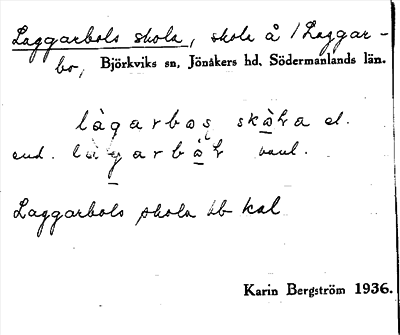 Laggarbols skola, skola å 1 Laggar-
bo, Björkviks sn, Jönåkers hd, Södermanlands län.
el.
end. vanl.
Laggarbols skola hb kal
Karin Bergström 1936.